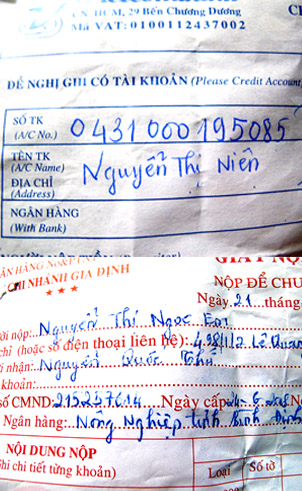 CN HCM, 29 Bến Chương Dương
Mã VAT: 0100112437002
ĐỀ NGHỊ GHI CÓ TÀI KHOẢN (Please Credit Account
SỐ TK
(A/C No.) 0431000195085
TÊN TK
(A/C Name) Nguyễn Thị Niên
ĐỊA CHỈ
(Address)
NGÂN HÀNG
(With Bank)
ÂN HÀNG
CHI NHÁNH GIA ĐỊNH
GIẤY NỘ
NỘP ĐỂ CHU
Ngày 21 tháng
ời nộp: Nguyễn Thị Ngọc
chỉ (hoặc số điện thoại liên hệ): Lê Quan
ời nhận: Nguyễn Quốc
khoản:
số CMND: 215247614 Ngày cấp
Ngân hàng: Nông Nghiệp tỉnh Bình Định
NỘI DUNG NỘP
Ghi chi tiết từng khoản)
Loại
Số tờ